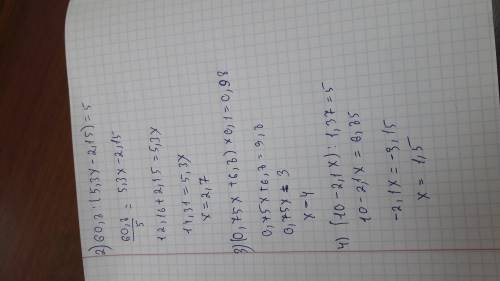 2) 60,8 : (5,3x - 2,15) = 5
60,8/5 = 5,3x - 2,15
12,16 + 2,15 = 5,3x
14,31 = 5,3x
x = 2,7
3) (0,75x + 6,8) x 0,1 = 0,98
0,75x + 6,8 = 9,8
0,75x = 3
x - 4
4) (10 - 2,1x) : 1,37 = 5
10 - 2,1x = 6,85
-2,1x = -3,15
x = 1,5